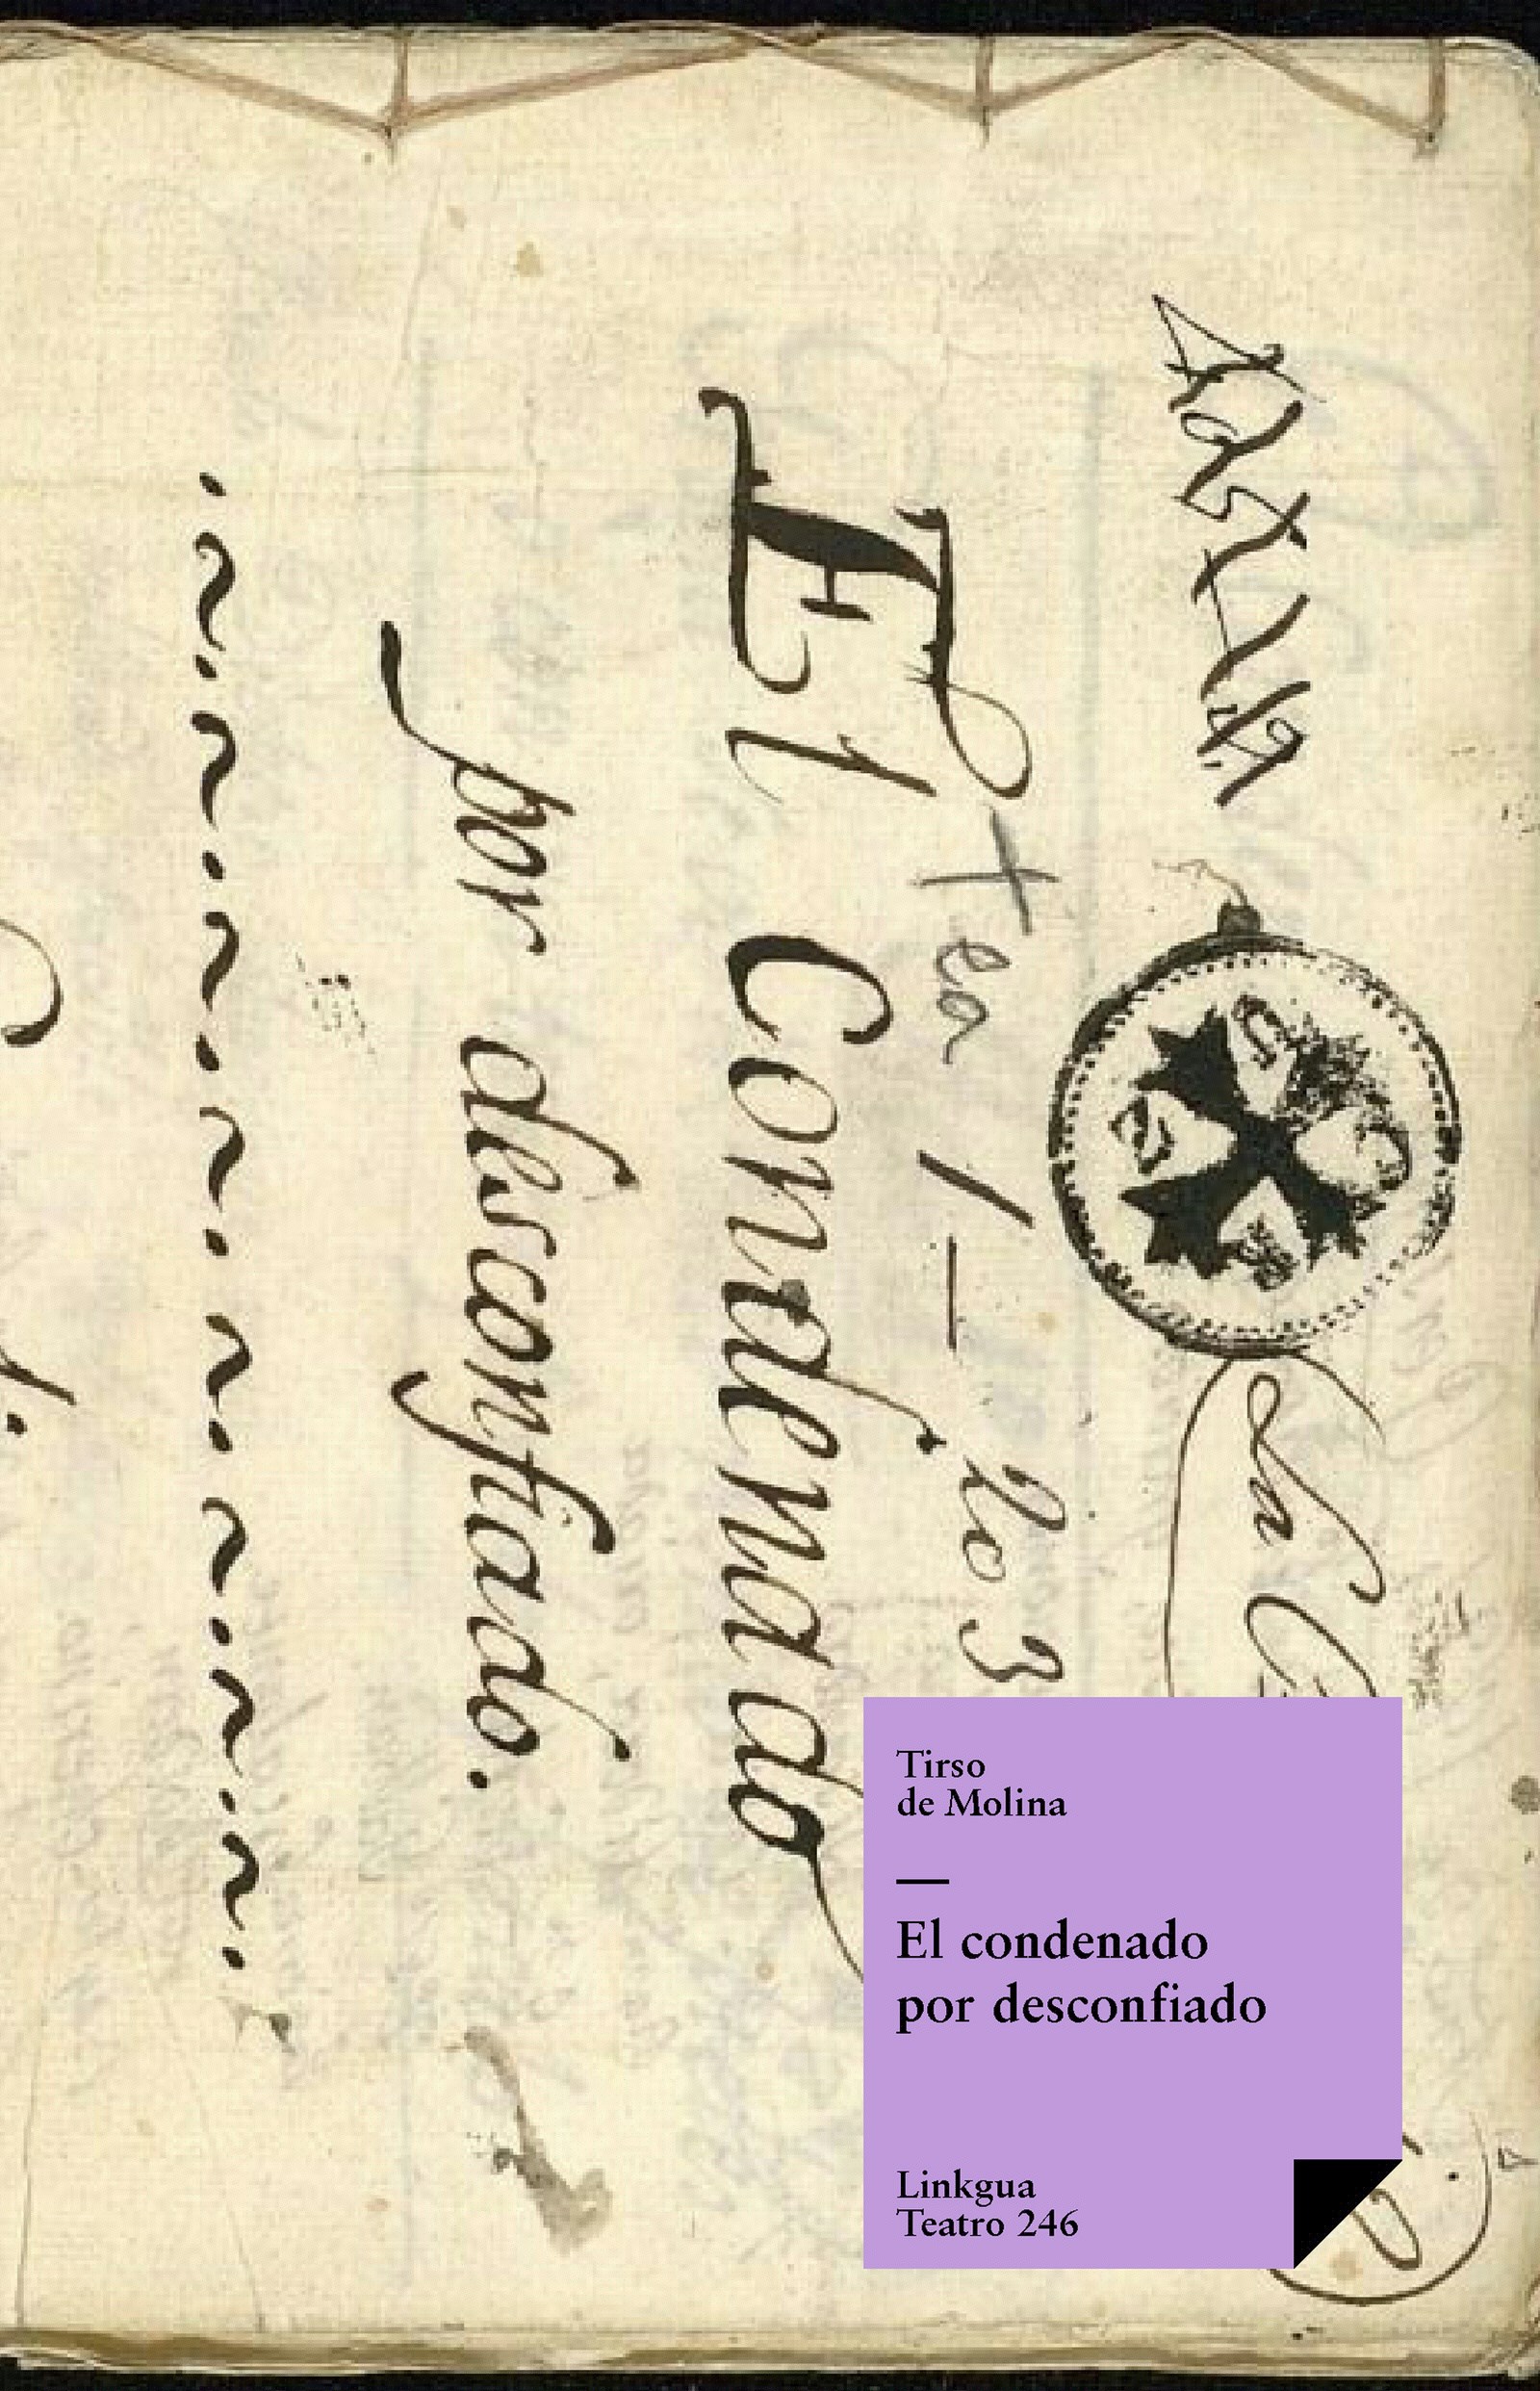 Tea 1 - 20 3
El Condenado
por desconfiado.
Tirso
de Molina
El condenado
por desconfiado
Linkgua
Teatro 246